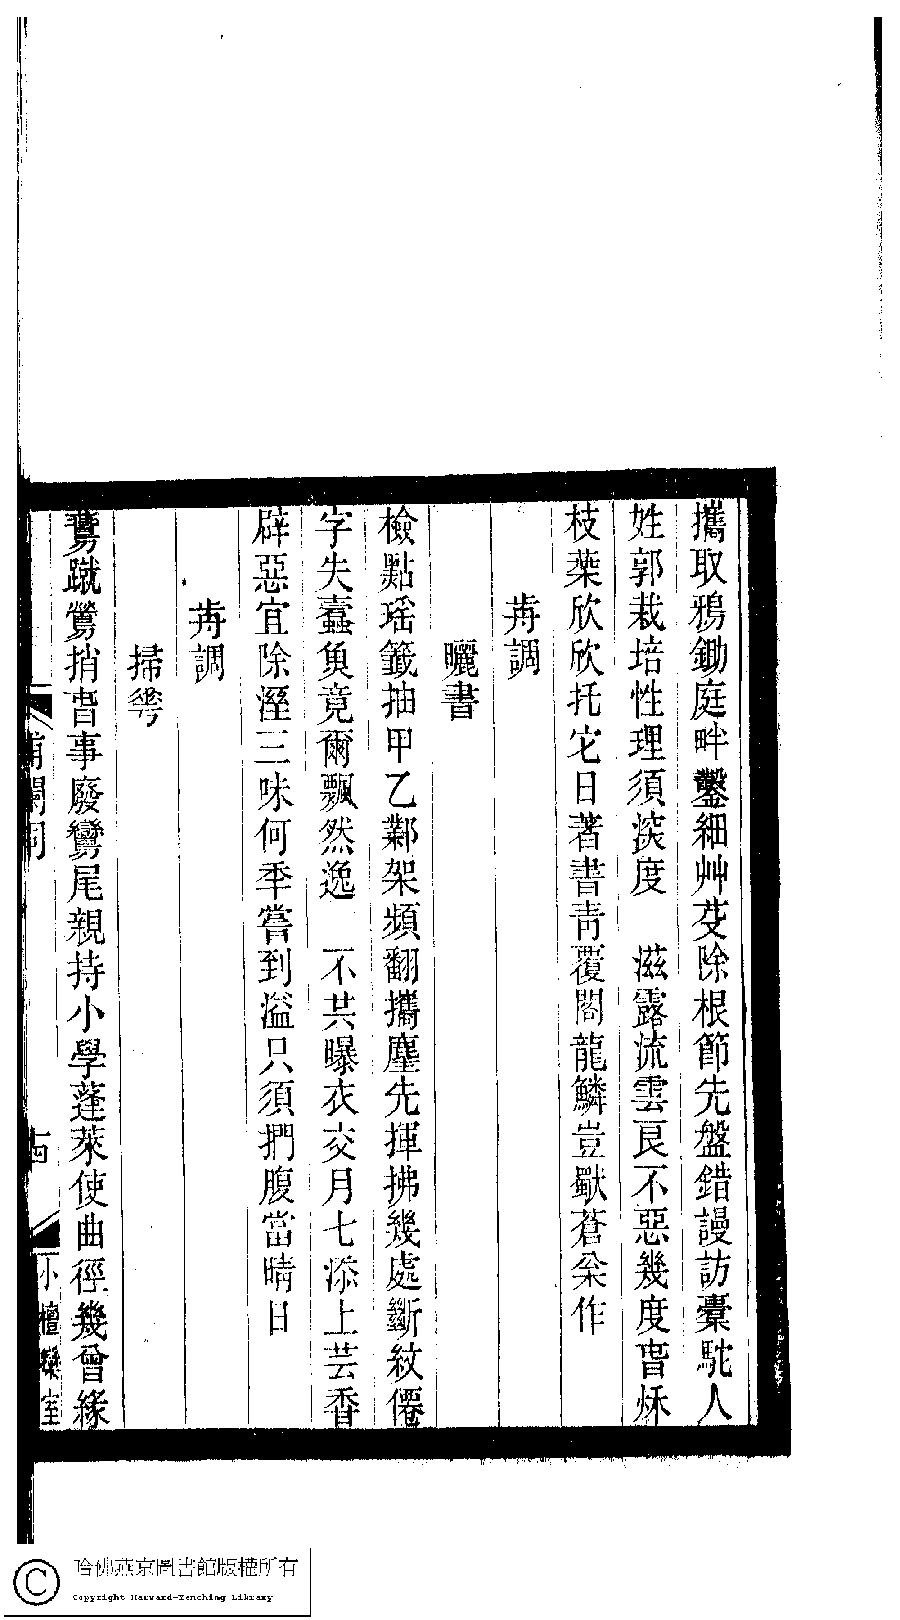 攜取鴉鋤庭畔鑿細艸芟除根節先盤錯謾訪橐駝人
姓郭栽培性理須㴱度　滋露流雲良不惡幾度萅秌
枝葉欣欣托它日著書青覆閣龍鱗豈猒蒼枀作
歬調
曬書
檢點瑤籤抽甲乙鄴架頻翻攜麈先揮拂幾處斷紋僊
字失蠹魚竟爾飄然逸　不共曝衣交月七添上芸香
辟惡宜除溼三味何秊嘗到溢只須捫腹當晴日
歬調
掃䓵
鷰蹴鶯捎萅事廢鸞尾親持小學蓬萊使曲徑幾曾緣
十四
小檀欒室
哈佛燕京圖書館版權所有
Copyright Harvard-Yenching Library